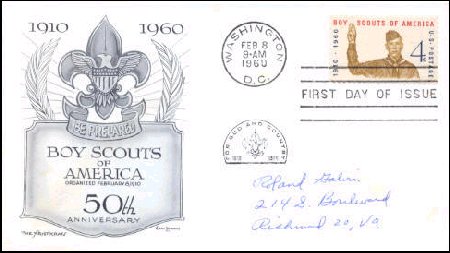 1910 1960
BE PREPARED
BOY SCOUTS
OF
AMERICA
ORGANIZED FEBRUARY 8, 1910
50th
ANNIVERSARY
THE ARISTOCRATS
WASHINGTON
FEB 8
9-AM
1960
D.C.
BOY SCOUTS OF AMERICA
1910-1960
4¢
U.S. POSTAGE
FIRST DAY OF ISSUE
FOR GOD AND COUNTRY
1910
Roland
214 S. Boulevard
Richmond 20, Va.